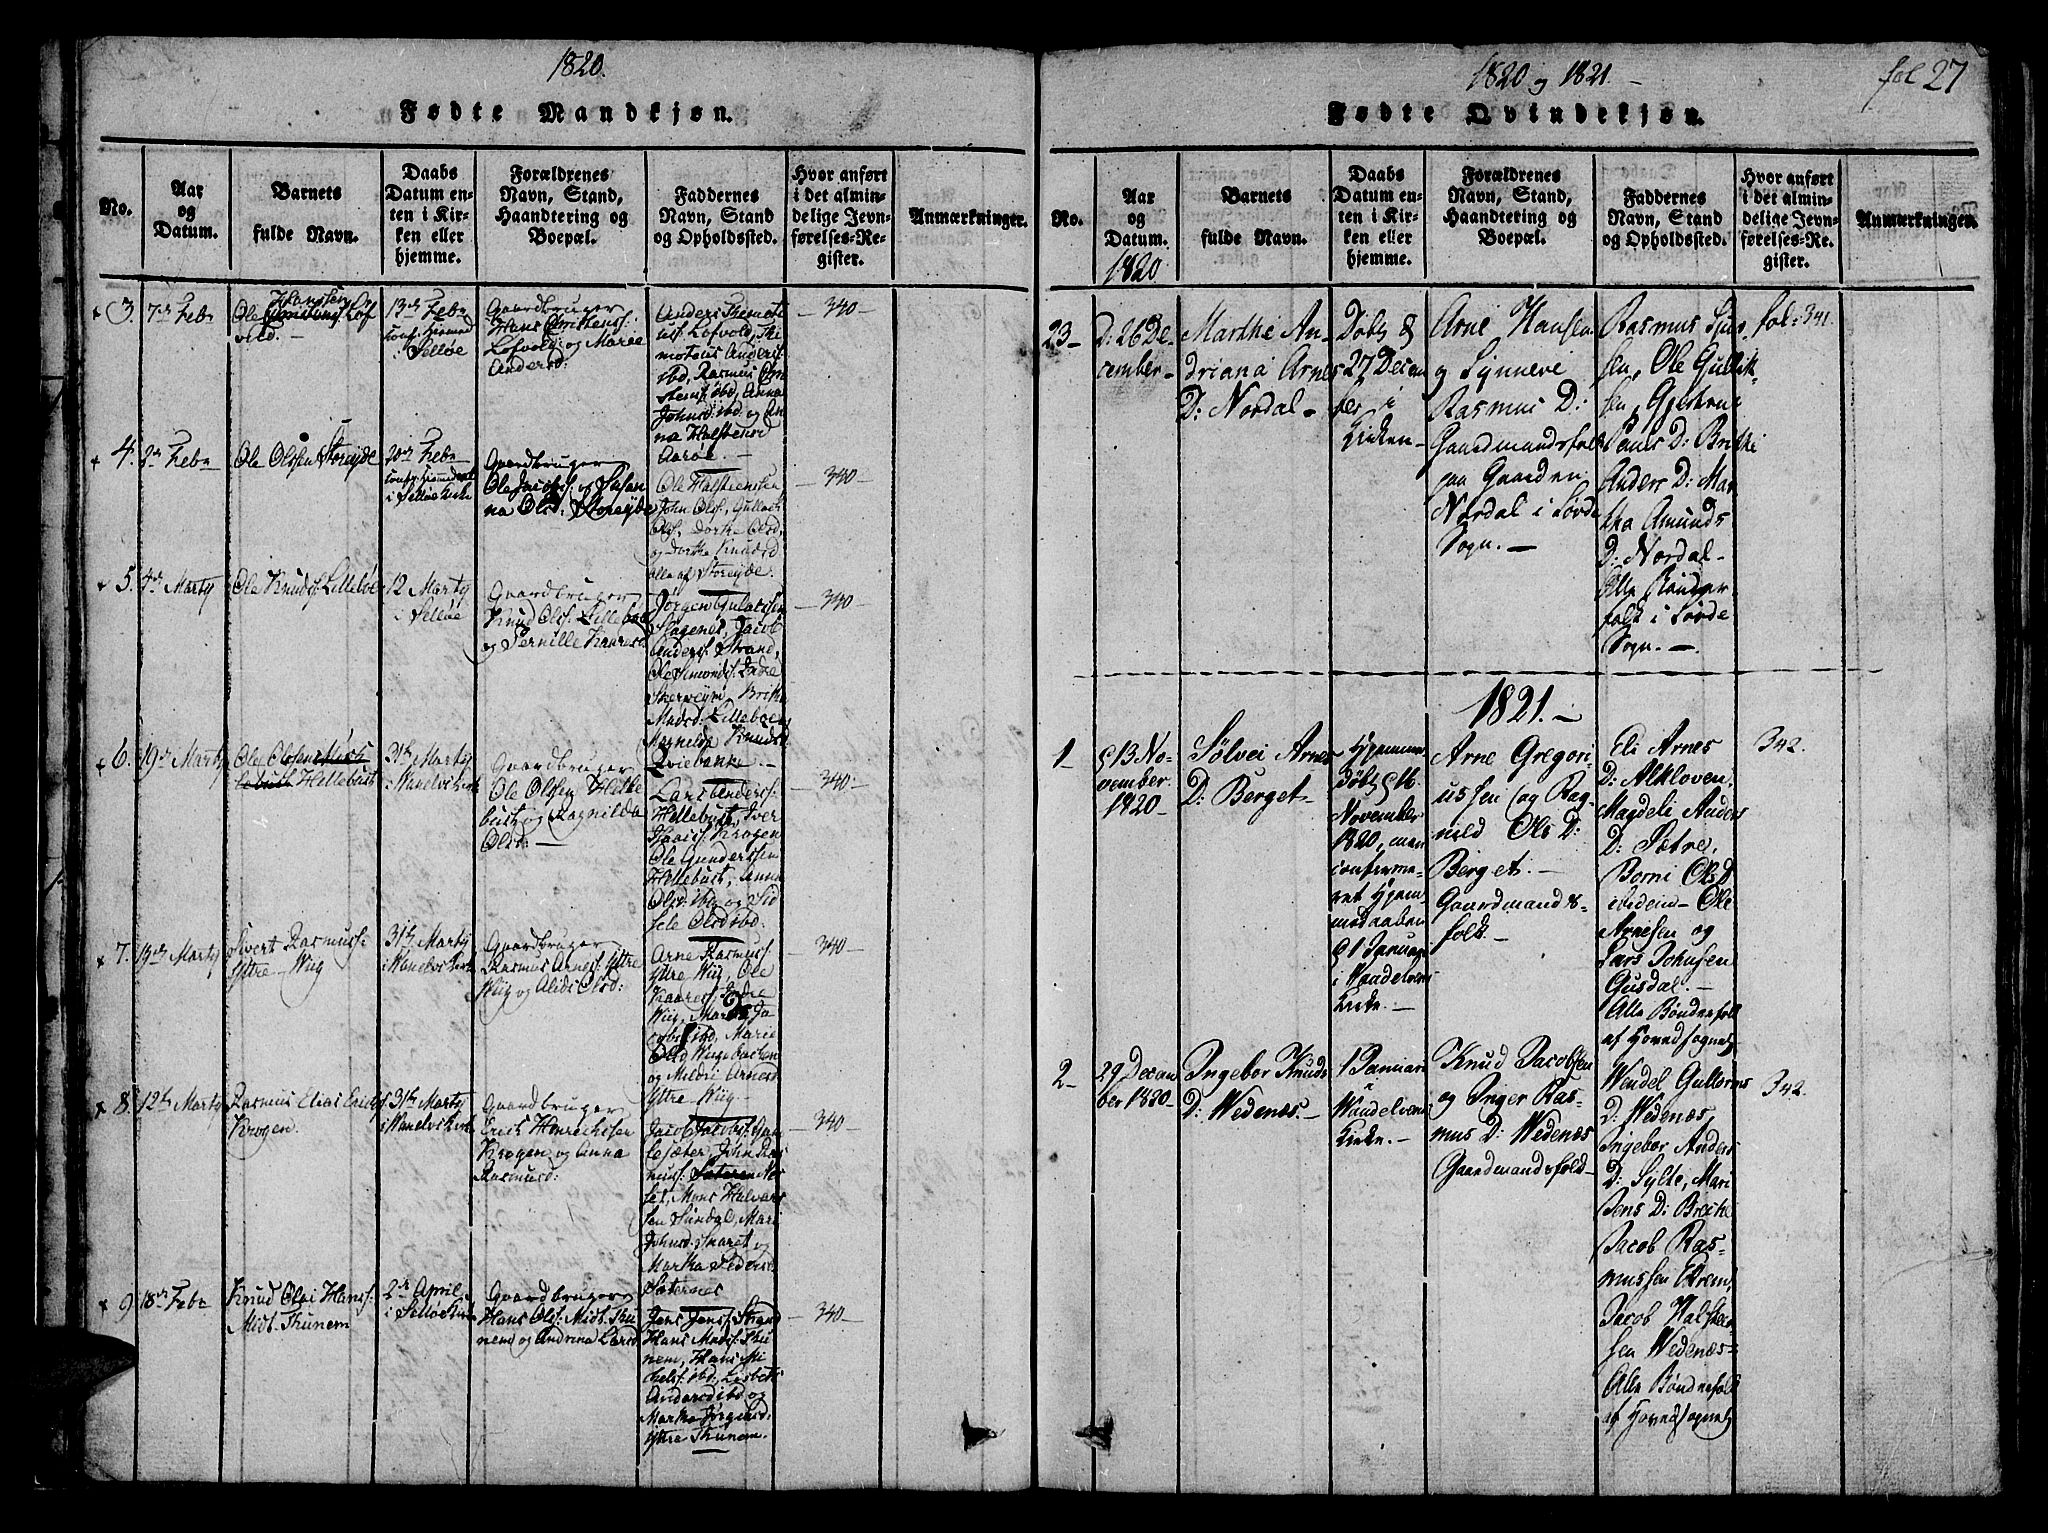 1820.
Fødte Mandkjøn.
No.
Aar
og
Datum.
Barnets
fulde Navn.
Daabs
Datum en-
ten i Kir-
ken eller
hjemme.
Forældrenes
Navn, Stand,
Haandtering og
Boepæl.
Faddernes
Navn, Stand
og Opholdssted.
Hvor anført
i det almin-
delige Jevn-
førelses-Re-
gister.
Anmærkninger.
3.
7de Febr
Ole Hanssen
Løf-
vold.
13de Febr
i Selløe
Gaardbruger
Hans
Løfvold: og Marie
Andersd:
Anders Themot
Løfvold, Ti-
moteus Anders
ibd, Rasmus
ibd, Anna
Johnsd: ibd og An-
na Halstensd
Aarøe. —
340
4.
2den Febr
Ole Olssen Storeyde
20de Febr
i Selløe Kirke
Gaardbruger
Ole Jacobs: og Susan
na Olsd: Storeyde
Ole Halstensen
John Olss, Gullach
Olss, Dorthe Olsd,
og Dorthe Knudsd
alle af Storeyde.
340
5.
4de Marty
Ole Knuds: Lillebøe
12 Marty
i Selløe
Gaardbruger
Knud Olss: Lillebøe
og Pernille Kaaresd
Jørgen
Jacob
Anders: Strand,
Ole Simonds:
Brithe
Madsd: Lillebøe
Magnilda Knudsd
Qviebakke. —
340
6.
19de Marty
Ole Olsen
Hellebust
31te Marty
i Wanelvs Kirke
Gaardbruger
Ole Olsen Helle
bust og Ragnilda
Olsd: —
Lars Anderss:
Hellebust, Iver
Krogen
Ole Gunderssen
Hellebust, Anna
Olsd: ibd og Sid-
sele Olsd ibd.
340
7.
19de Marty
Sivert Rasmuss:
Yttre Wiig
31te Marty
i Wanelvs Kirke
Gaardbruger
Rasmus Arnes: Yttre
Wiig og Alids Olsd:
Arne Rasmuss:
Yttre Wiig, Ole
Kaaress:
Wiig, Maria Ja-
cobsd ibd, Marie
Olsd Wiigebachen
og Mildri Arnesd
Yttre Wiig—
340
8.
12te Marty
Rasmus Elias Erichs
Krogen.
31te Marty
i Wanelvs Kirke
Gaardbruger
Erich Henrichssen
Krogen og Anna
Rasmusd:
Jacob Jacobs: Gam
lesæter, John Ras
muss:
set, Mons Halvars
sen Sundal, Mari
Johnsd: Skaret og
Martha Pedersd
Sæternes
340
9
18de Febr
Knud Olai Hanss:
Midt. Thunem
2de April
i Selløe Kirke
Gaardbruger
Hans Olss: Midt. Thu
nem og Andrina Larsd
Jens Jens: Strand
Hans Mads: Thu-
nem, Hans Mi-
chelss: ibd, Lisbeth
Andersd ibd og
Martha Jørgensd:
Yttre Thunem.
340
1820 og 1821. —
fol 27
Fødte Qvindekjøn.
No.
Aar
og
Datum.
1820
Barnets
fulde Navn.
Daabs
Datum en-
ten i Kir-
ken eller
hjemme.
Forældrenes
Navn, Stand,
Haandtering og
Boepæl.
Faddernes
Navn, Stand
og Opholdssted.
Hvor anført
i det almin-
delige Jevn-
førelses-Re-
gister.
Anmærkninger.
23
D: 26 De-
cember
Marthe An-
driana Arnes
D: Nordal
Døbt d
27 Decem
ber i
Kirken
Arne Hansen
og Synneve
Rasmus D:
Gaardmandsfolk
paa Gaarden
Nordal i Søvde
Sogn. —
Rasmus Sjurs
sen, Ole Gullik-
sen, Gjertrui
D: Brithe
Anders D: Mar-
tha Amunds
D: Nordal
Alle Bønder
folk i Søvde
Sogn. —
fol: 341.
1821. —
1
d 13 No-
vember
1820
Sølvei Arnes
D: Berget
Hjemme
døbt d 16
November
1820, men
confirme-
ret Hjem
medaaben
d 1 Januar
i Vandelvens
Kirke. —
Arne Gregori-
ussen og Rag-
nild Ols D:
Berget. —
Gaardmands-
folk
Eli Arnes
D: Alkloven
Magdeli Anders
D: Sætre.
Borni Ols D
ibidem — Ole
Arnesen og
Lars Johnsen
Gusdal. —
Alle Bønderfolk
af Hovedsognet
342.
2
29 Decem
ber 1820
Ingebor Knuds
D: Wedenæs.
1 Januari
i
Vandelvens
Kirke. —
Knud Jacobsen
og Inger Ras-
mus D: Wedenæs
Gaardmandsfolk
Wendel Guttorms
D: Wedenæs
Ingebor Anders
D: Sylte, Mari
Jens D: Breche
Jacob Ras-
mussen Brem,
Jacob Halste-
sen Wedenæs
Alle Bønderfolk
af Hovedsognet
342.